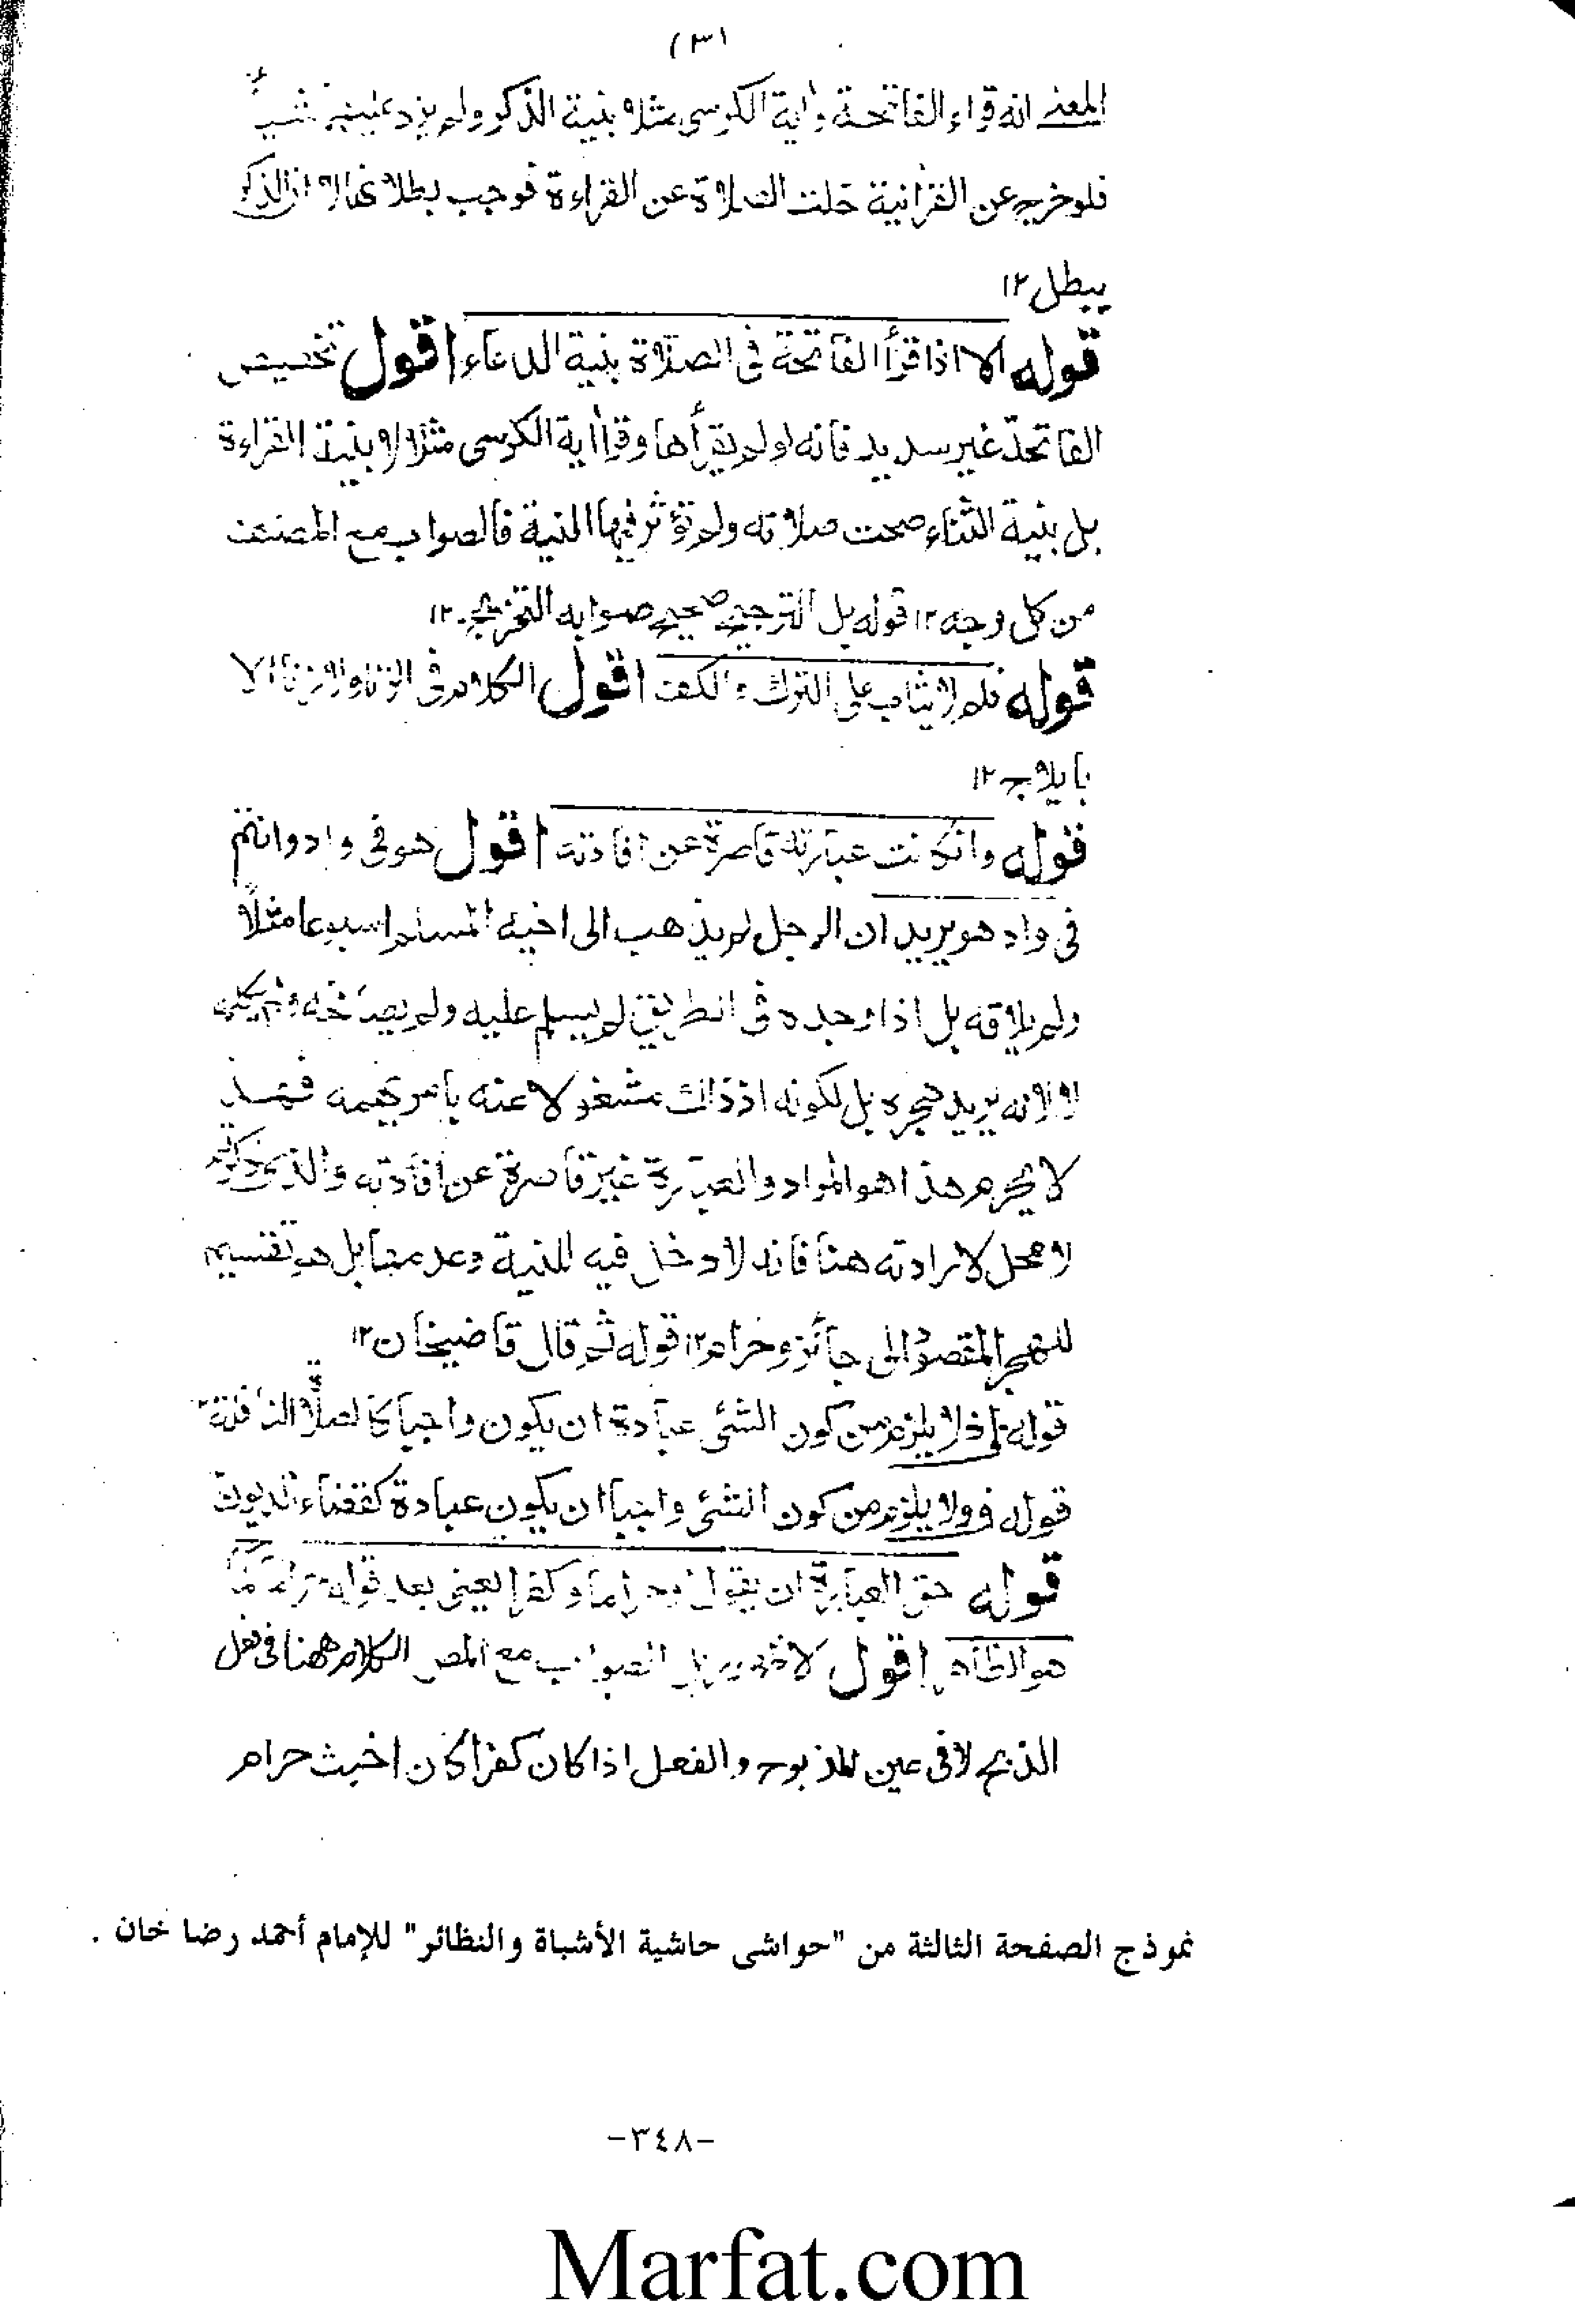 (٣)
المعنى انه قراء الفاتحة واية الكرسى مثلا بنية الذكر ولم يزد عليه شيئ
فلو خرج عن القرانية خلت الصلاة عن القراءة فوجب بطلانها لا ان الذكر
يبطل ١٢
قوله الا اذا قرأ الفاتحة فى الصلاة بنية الدعاء اقول تخصيص
الفاتحة غير سديد فانه لو لم يقرأها وقرا اية الكرسى مثلا لا بنية القراءة
بل بنية الثناء صحت صلاته ولم تؤثر فيها النية فالصواب مع المصنف
من كل وجه ١٢ قوله بل الترجيح صحيح صوابه التخريج ١٢
قوله فلم لا يثاب على الترك والكف اقول الكلام فى الزنا ولا زنا الا
بايلاج ١٢
قوله وان كانت عبارته قاصرة عن افادته اقول هو فى واد وانتم
فى واد هو يريد ان الرجل لم يذهب الى اخيه المسلم اسبوعا مثلاً
ولم يلاقه بل اذا وجده فى الطريق لم يسلم عليه ولم يصافحه ولم يكلمه
لا لانه يريد هجره بل لكونه اذ ذاك مشغولا عنه بامر يهمه فهذا
لا يحرم هذا هو المراد والعبارة غير قاصرة عن افادته والذى ذكرتم
لا محل لارادته هنا فانه لا دخل فيه للنية وعدمها بل هو تقسيم
للهجر المقصود الى جائز وحرام ١٢ قوله ثم قال قاضيخان ١٢
قوله اذ لا يلزم من كون الشئ عبادة ان يكون واجبا كالصلاة النافلة ١٢
قوله ولا يلزم من كون الشئ واجبا ان يكون عبادة كقضاء الديون
قوله حق العبارة ان يقول وحراما وكفرا يعنى بعد قوله
هو الظاهر اقول لا بل الصواب مع المص الكلام ههنا فى فعل
الذبح لا فى عين المذبوح والفعل اذا كان كفرا كان اخبث حرام
نموذج الصفحة الثالثة من "حواشى حاشية الأشباة والنظائر" للإمام أحمد رضا خان .
-٣٤٨-
Marfat.com